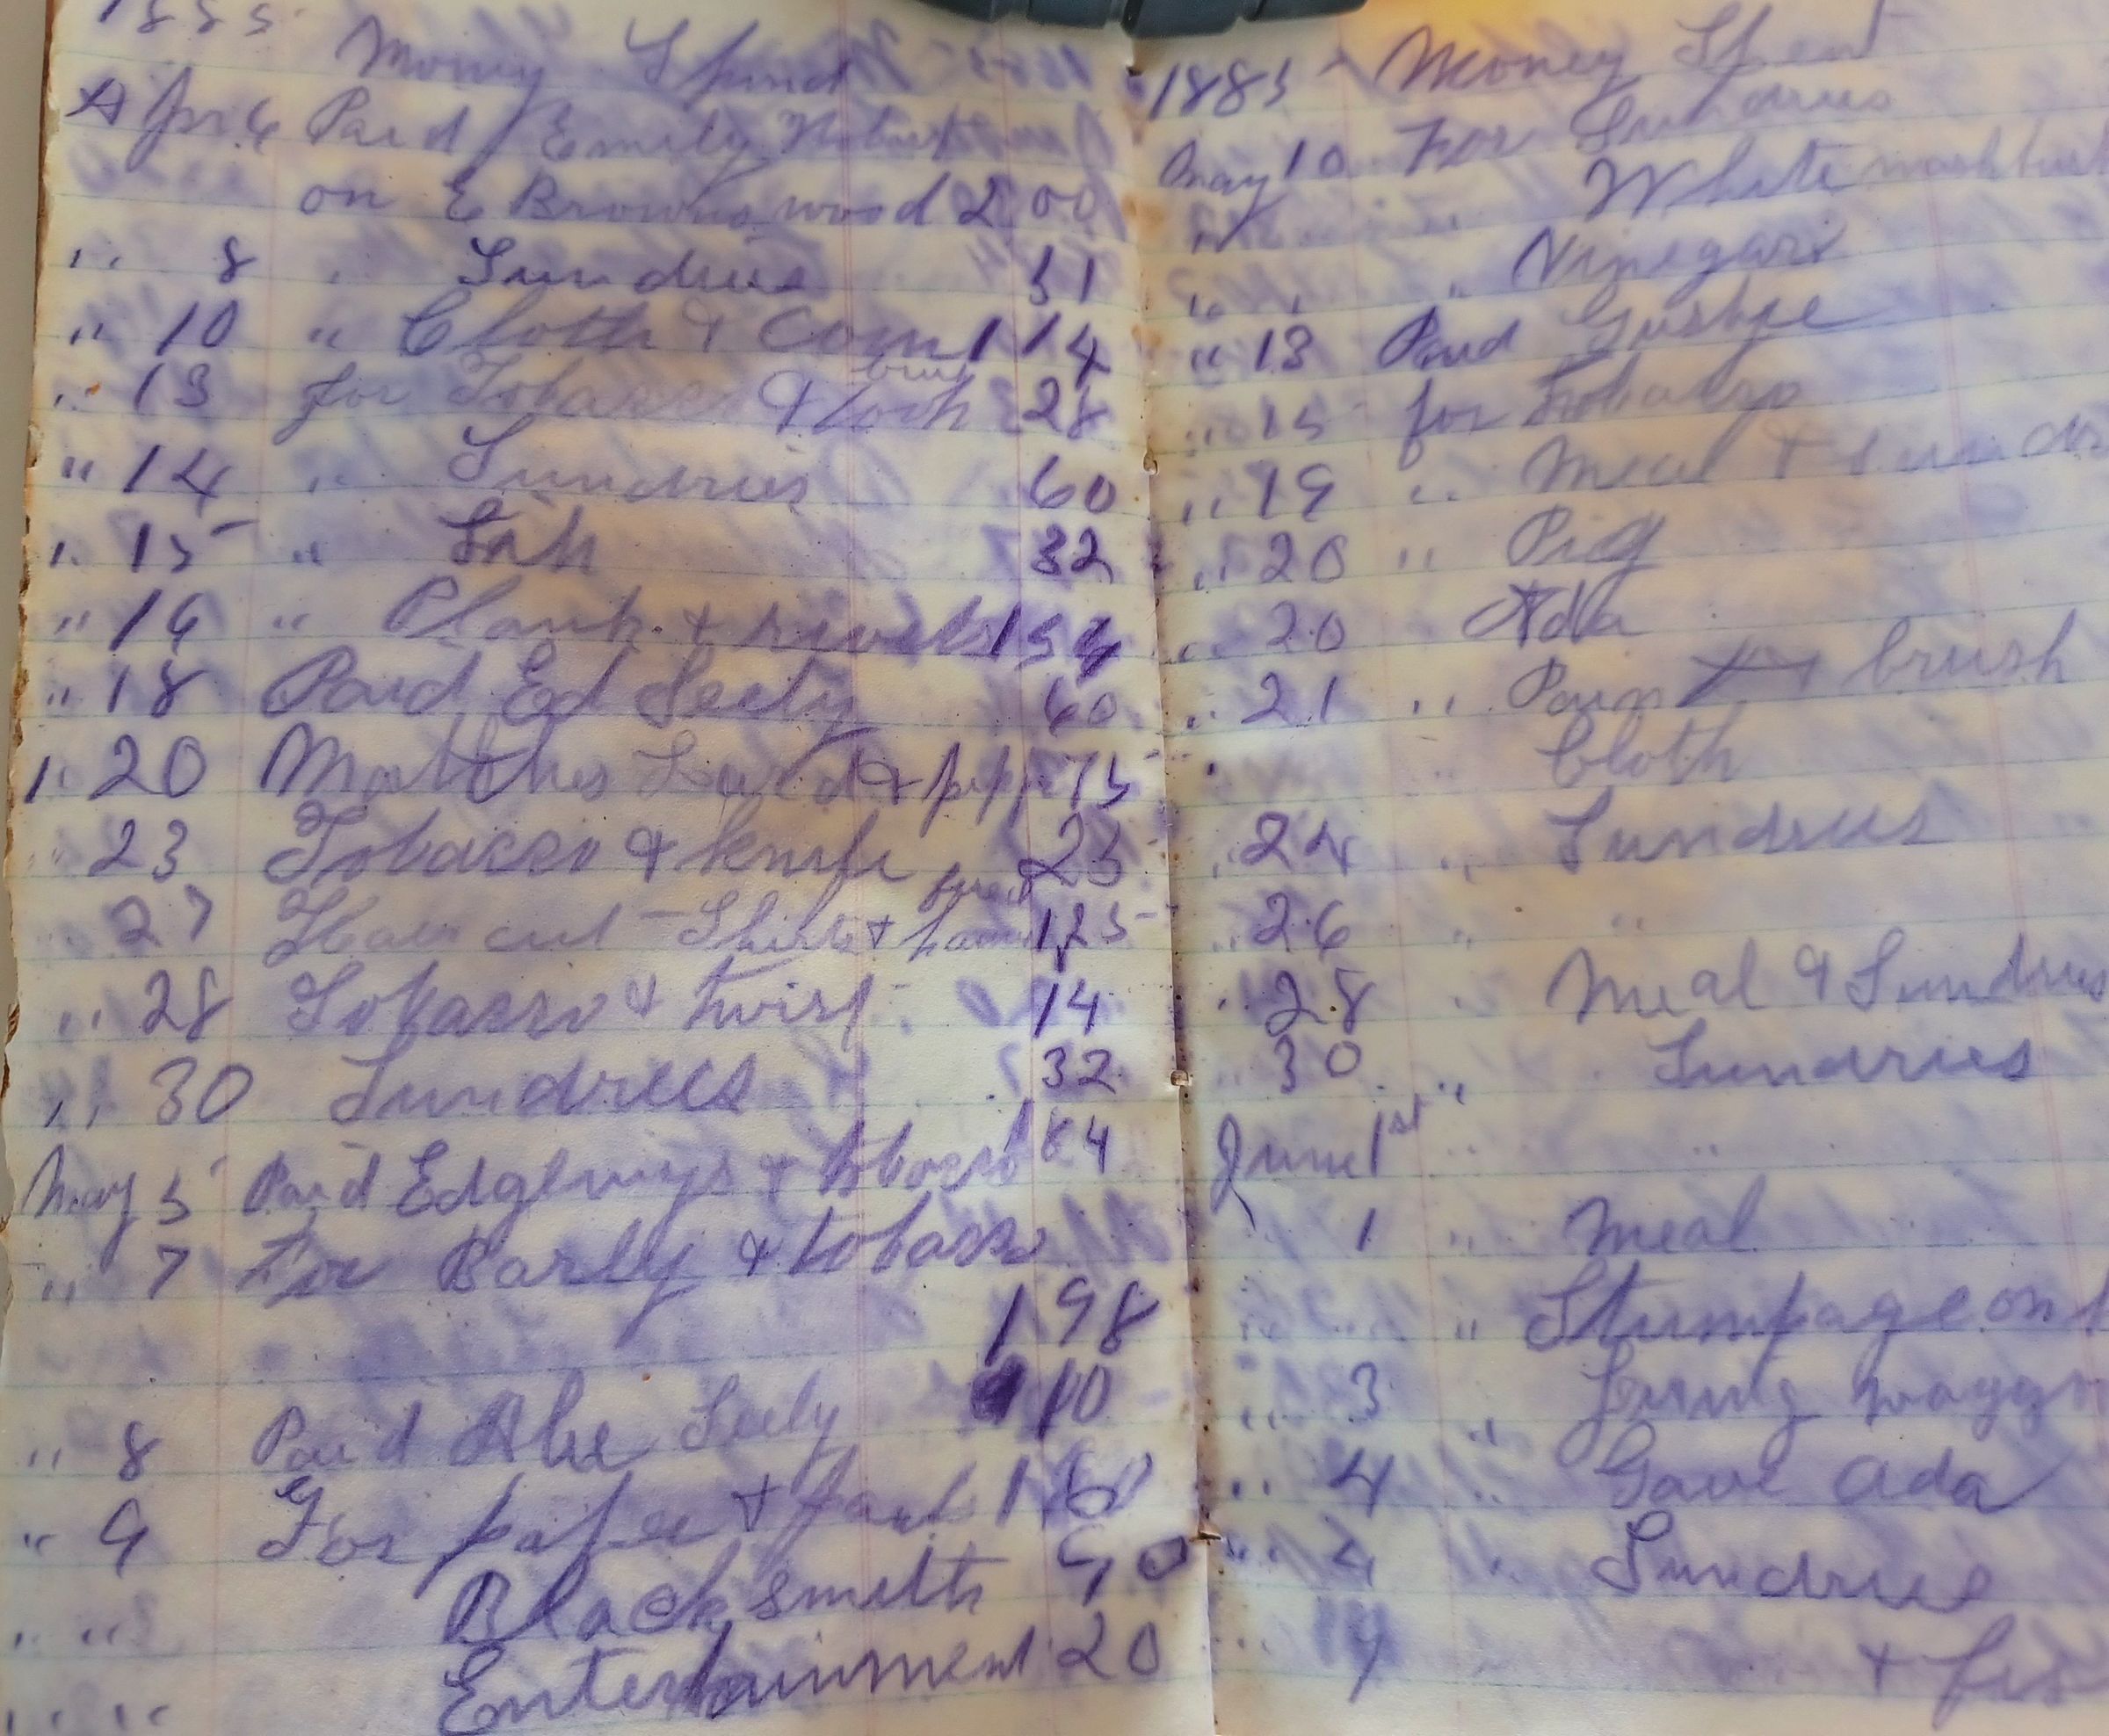 1885
Money Spend
Apr 6 Paid Emily
on E Browns wood 2 00
" 8 " Sundries 51
" 10 " Cloth & Corn 1 14
" 13 for Tobacco & 28
" 14 " Sundries 60
" 15 " 32
" 16 " Plank & rivets 1 54
" 18 Paid Ed Seely 60
" 20 Matches Lard & 75
" 23 Tobacco & knife 25
" 27 Hair cut Shirt & 1 25
" 28 Tobacco & twist 14
" 30 Sundrees 32
May 5 Paid & 84
" 7 For Barly & tobacco
1 98
" 8 Paid Abe Seely 10
" 9 For & 1
" " Blacksmith
" " Entertainment 20
1885 Money Spent
May 10 For Sundries
" White wash
" " " Vinegar
" 13 Paid
" 15 for Tobacco
" 19 " Meal &
" 20 " Pig
" 20 Ada
" 21 " Paint & brush
" Cloth
" 24 " Sundries
" 26 " "
" 28 " Meal & Sundries
" 30 " Sundries
June 1st " "
" 1 " Meal
" " " Stumpage on
" 3 "
" 4 " Gave Ada
" 4 " Sundries
" &